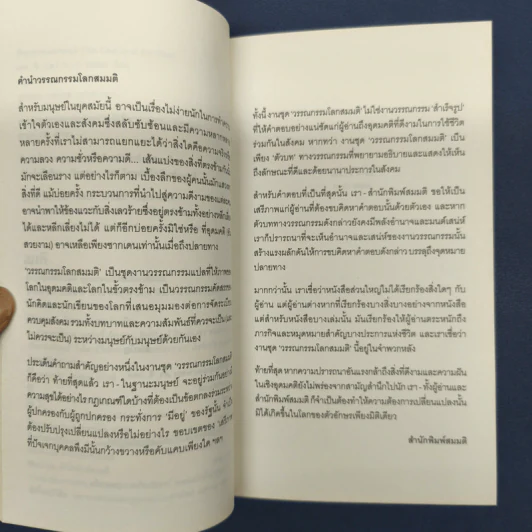 คำนำวรรณกรรมโลกสมมติ
สำหรับมนุษย์ในยุคสมัยนี้ อาจเป็นเรื่องไม่ง่ายนักในการทำความ
เข้าใจตัวเองและสังคมซึ่งสลับซับซ้อนและมีความหลากหลาย
หลายครั้งที่เราไม่สามารถแยกแยะได้ว่าสิ่งใดคือความจริงหรือ
ความลวง ความชั่วหรือความดี... เส้นแบ่งของสิ่งที่ตรงข้ามกันนั้น
มักจะเลือนราง แต่อย่างไรก็ตาม เบื้องลึกของผู้คนนั้นมักแสวงหา
สิ่งที่ดี แม้บ่อยครั้ง กระบวนการที่นำไปสู่ความดีงามของแต่ละคน
อาจนำพาให้ข้องแวะกับสิ่งเลวร้ายซึ่งอยู่ตรงข้ามทั้งอย่างหลีกเลี่ยง
ได้และหลีกเลี่ยงไม่ได้ แต่ก็อีกบ่อยครั้งมิใช่หรือ ที่อุดมคติ
สวยงาม) อาจเหลือเพียงซากเดนเท่านั้นเมื่อถึงปลายทาง
'วรรณกรรมโลกสมมติ' เป็นชุดงานวรรณกรรมแปลที่ให้ภาพของ
โลกในอุดมคติและโลกในขั้วตรงข้าม เป็นวรรณกรรมคัดสรรของ
นักคิดและนักเขียนของโลกที่เสนอมุมมองต่อการจัดระเบียบ
ควบคุมสังคม รวมทั้งบทบาทและความสัมพันธ์ที่ควรจะเป็น (และ
ไม่ควรจะเป็น) ระหว่างมนุษย์กับมนุษย์ด้วยกันเอง
ประเด็นคำถามสำคัญอย่างหนึ่งในงานชุด 'วรรณกรรมโลกสมมติ'
ก็คือว่า ท้ายที่สุดแล้ว เรา - ในฐานะมนุษย์ จะอยู่ร่วมกันอย่างมี
ความสุขได้อย่างไร กฎเกณฑ์ใดบ้างที่ต้องเป็นข้อตกลงร่วมระหว่าง
ผู้ปกครองกับผู้ถูกปกครอง กระทั่งการ 'มีอยู่' ของรัฐนั้น จำเป็น
ต้องปรับปรุงเปลี่ยนแปลงหรือไม่อย่างไร ขอบเขตของ 'เสรีภาพ'
ที่ปัจเจกบุคคลพึงมีนั้นกว้างขวางหรือคับแคบเพียงใด ฯลฯ
ทั้งนี้ งานชุด 'วรรณกรรมโลกสมมติ' ไม่ใช่งานวรรณกรรม 'สำเร็จรูป'
ที่ให้คำตอบอย่างแน่ชัดแก่ผู้อ่านถึงอุดมคติที่ดีงามในการใช้ชีวิต
ร่วมกันในสังคม หากทว่า งานชุด 'วรรณกรรมโลกสมมติ' เป็น
เพียง 'ตัวบท' ทางวรรณกรรมที่พยายามอธิบายและแสดงให้เห็น
ถึงลักษณะที่ดีและด้อยนานาประการในสังคม
สำหรับคำตอบที่เป็นที่สุดนั้น เรา - สำนักพิมพ์สมมติ ขอให้เป็น
เสรีภาพแก่ผู้อ่านที่ต้องขบคิดหาคำตอบนั้นด้วยตัวเอง และหาก
ตัวบททางวรรณกรรมดังกล่าวยังคงมีพลังอำนาจและมนต์เสน่ห์
เราก็ปรารถนาที่จะเห็นอำนาจและเสน่ห์ของงานวรรณกรรมนั้น
สร้างแรงผลักดันให้การขบคิดหาคำตอบดังกล่าว บรรลุถึงจุดหมาย
ปลายทาง
มากกว่านั้น เราเชื่อว่าหนังสือส่วนใหญ่ไม่ได้เรียกร้องสิ่งใดๆ กับ
ผู้อ่าน แต่ผู้อ่านต่างหากที่เรียกร้องบางสิ่งบางอย่างจากหนังสือ
แต่สำหรับหนังสือบางเล่มนั้น มันเรียกร้องให้ผู้อ่านตระหนักถึง
ภารกิจและหมุดหมายสำคัญบางประการแห่งชีวิต และเราเชื่อว่า
งานชุด 'วรรณกรรมโลกสมมติ' นี้อยู่ในจำพวกหลัง
ท้ายที่สุด หากความปรารถนาอันแรงกล้าถึงสิ่งที่ดีงามและความฝัน
ในเชิงอุดมคติยังไม่พร่องจากสามัญสำนึกไปนัก เรา - ทั้งผู้อ่านและ
สำนักพิมพ์สมมติ ก็จำเป็นต้องทำให้ความต้องการเปลี่ยนแปลงนั้น
มิได้เกิดขึ้นในโลกของตัวอักษรเพียงมิติเดียว
สำนักพิมพ์สมมติ